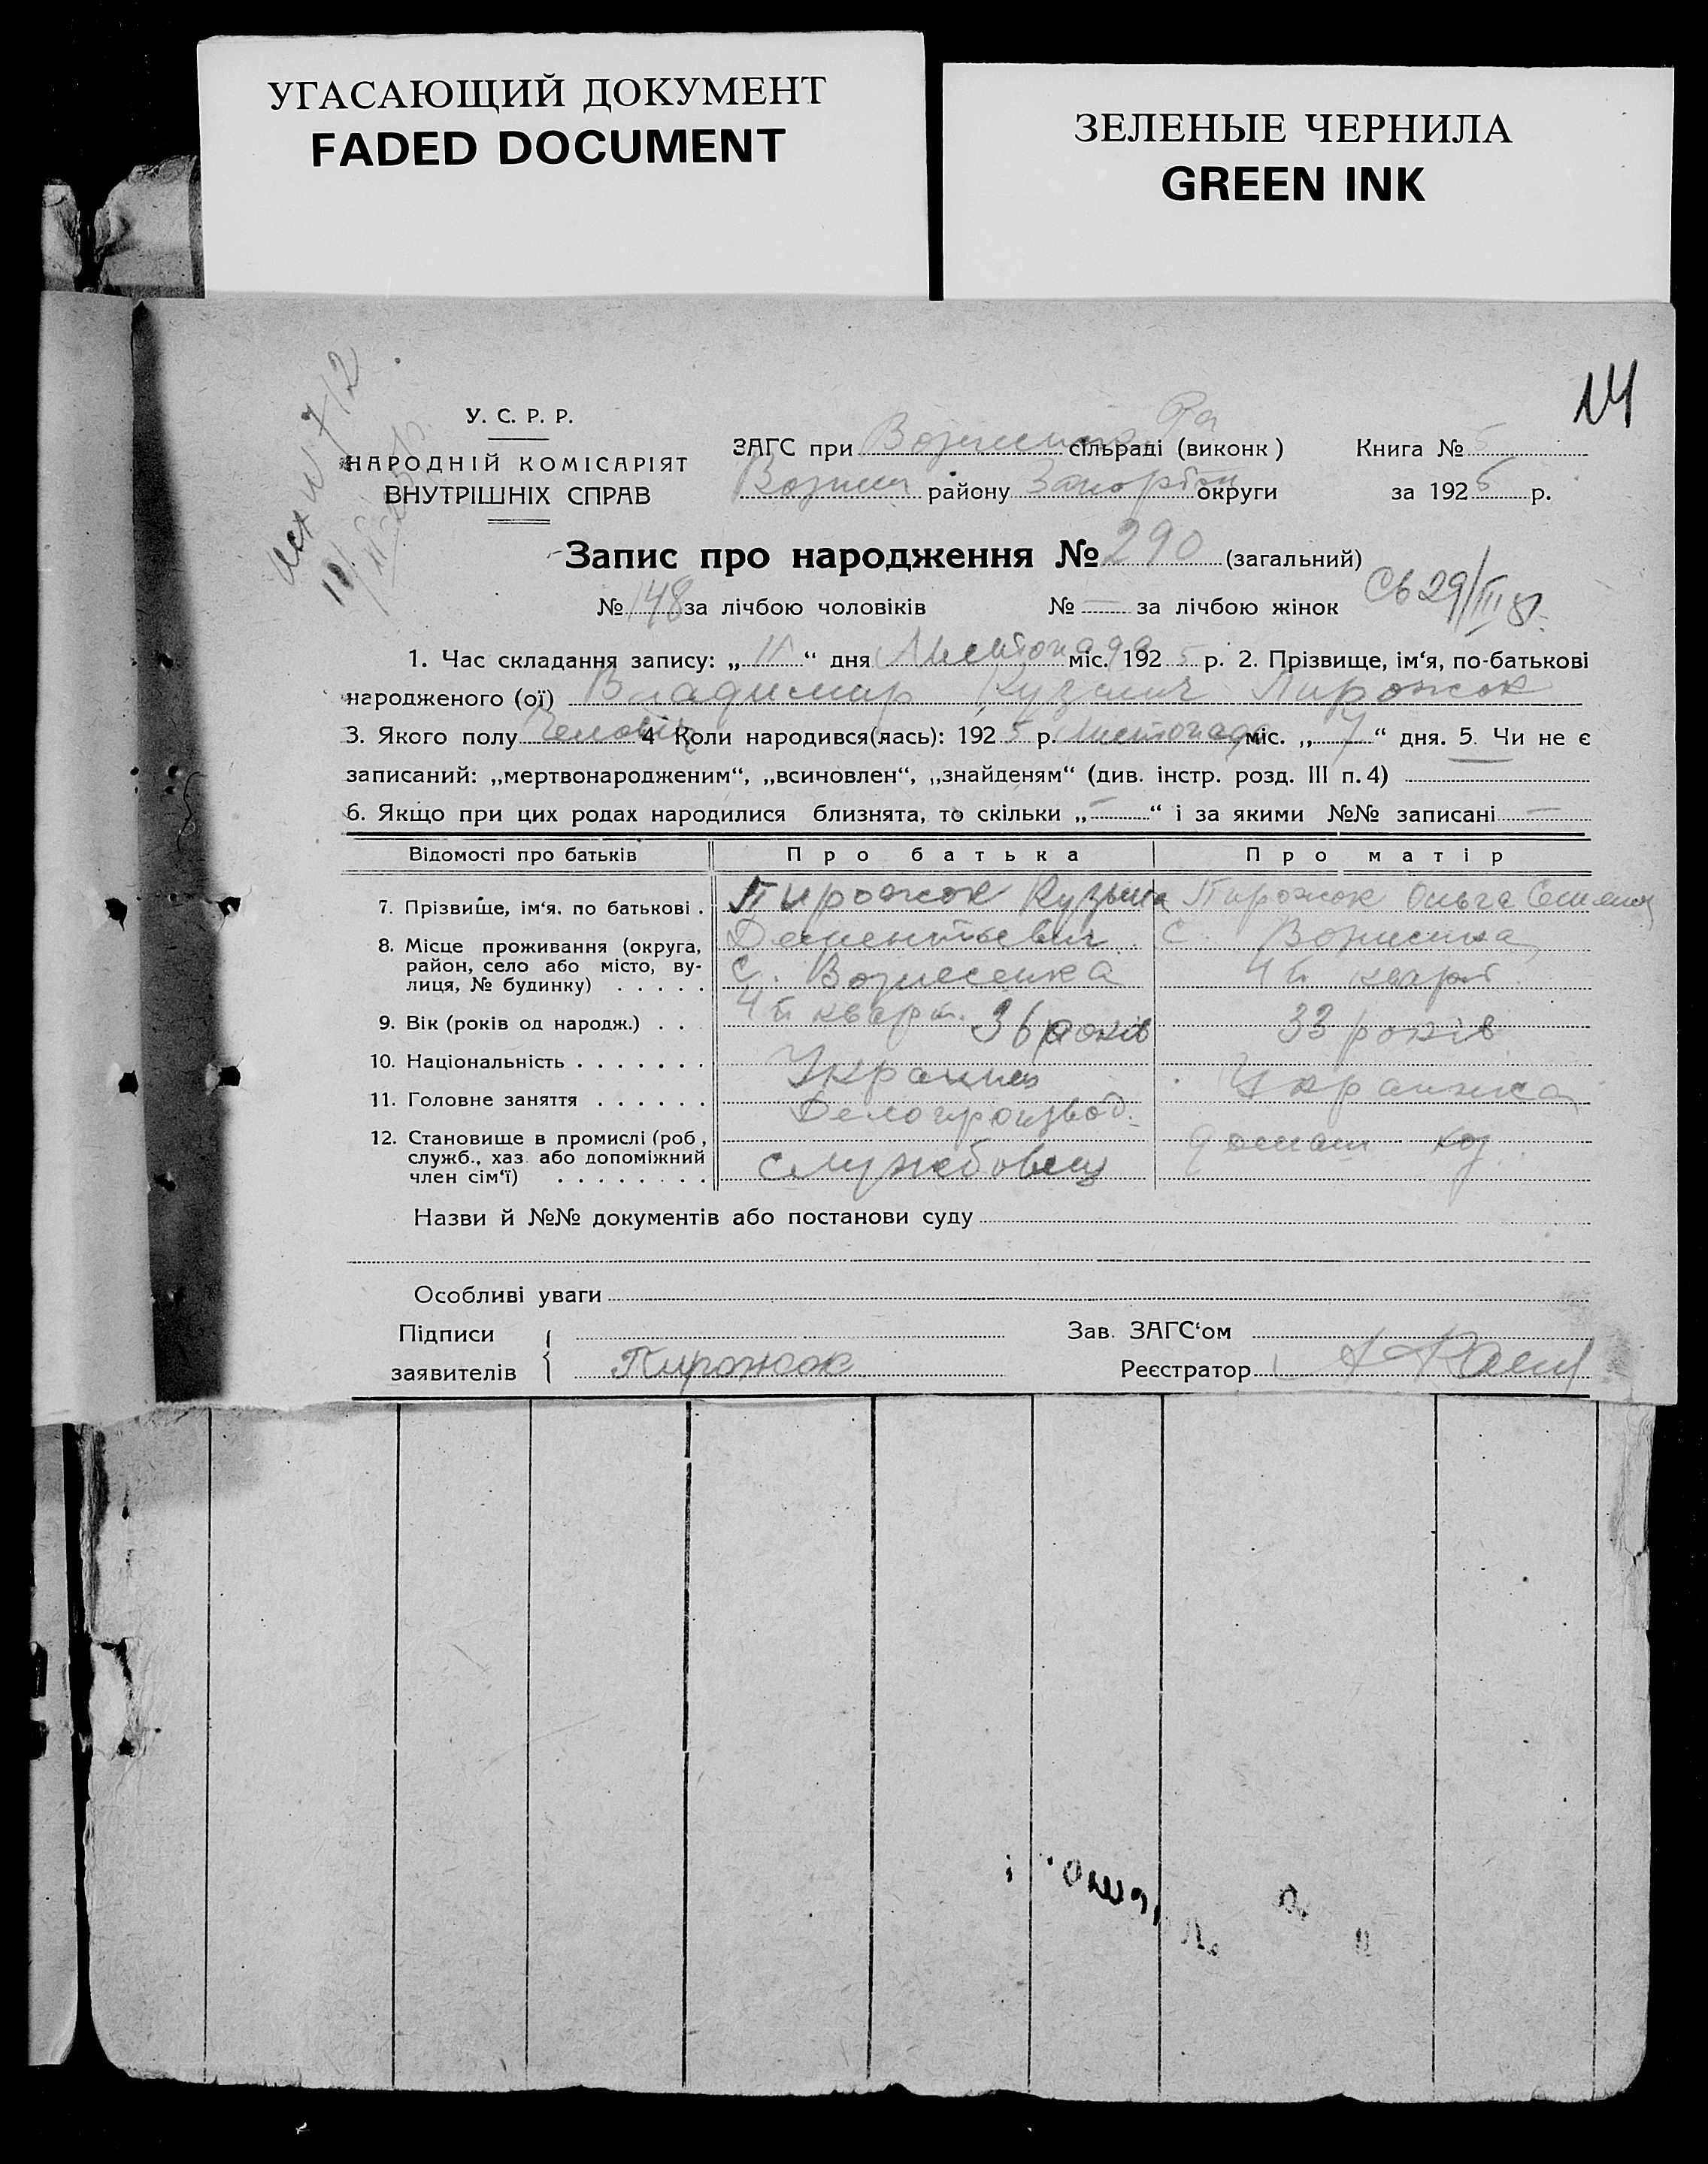 УГАСАЮЩИЙ ДОКУМЕНТ
FADED DOCUMENT
ЗЕЛЕНЫЕ ЧЕРНИЛА
GREEN INK
14
У. С. Р. Р.
НАРОДНІЙ КОМІСАРІЯТ
ВНУТРІШНІХ СПРАВ
ЗАГС при сільраді (виконк) Книга № 5
району округи за 1925 р.
Запис про народження № 290 (загальний)
№ 148 за лічбою чоловіків № — за лічбою жінок
Св 29/III
1. Час складання запису: „11“ дня Листопада міс. 1925 р. 2. Прізвище, ім‘я, по-батькові
народженого (ої) Владимир Кузьмич Пирожок
3. Якого полу Человік 4 Коли народився(лась): 1925 р. Листопада міс. „7“ дня. 5. Чи не є
записаний: „мертвонародженим“, „всиновлен“, „знайденям“ (див. інстр. розд. III п. 4)
6. Якщо при цих родах народилися близнята, то скільки „—“ і за якими №№ записані —
Відомості про батьків Про батька Про матір
7. Прізвище, ім‘я. по батькові . Пирожок Кузьма Пирожок Ольга
8. Місце проживання (округа, Дементьевич с.
район, село або місто, ву- с. Вознесенка 4й кварт.
лиця, № будинку) . . . . . 4й кварт.
9. Вік (років од народж.) . . . 36 років 33 років
10. Національність . . . . . . . Украинец Украинка
11. Головне заняття . . . . . . Делопроизвод.
12. Становище в промислі (роб., домаш. хоз.
служб., хаз. або допоміжний служебовец
член сім‘ї) . . . . . . . .
Назви й №№ документів або постанови суду
Особливі уваги
Підписи Зав. ЗАГС‘ом
заявителів Пирожок Реєстратор